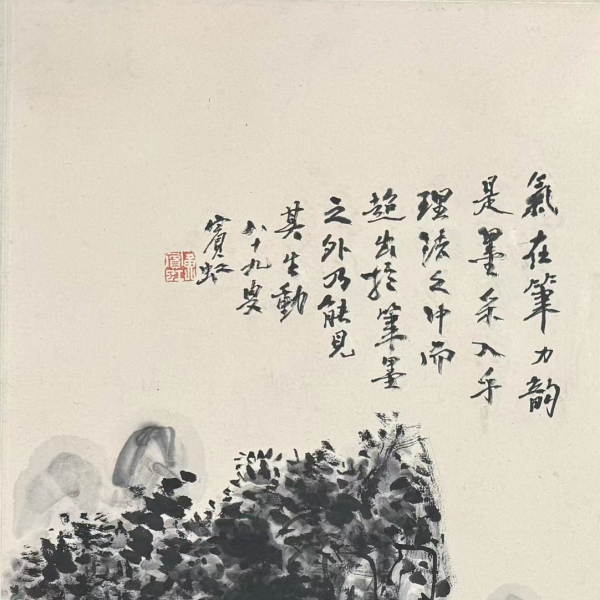 氣在筆力韵
是墨采入乎
理法之中而
超出於筆墨
之外乃能見
其生動
八十九叟
賓虹
黃賓虹